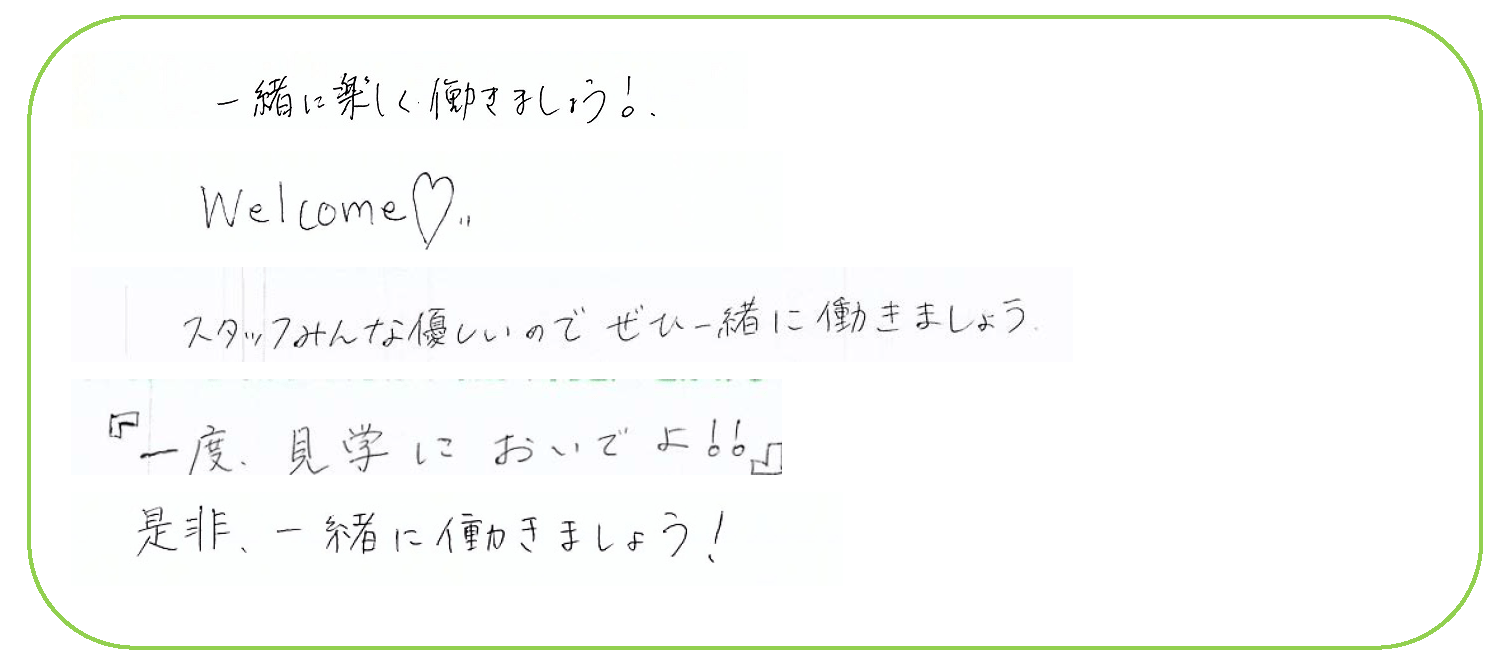 一緒に楽しく働きましょう!.
Welcome♡..
スタッフみんな優しいのでぜひ一緒に働きましょう.
『一度、見学においでよ!!』
是非、一緒に働きましょう!